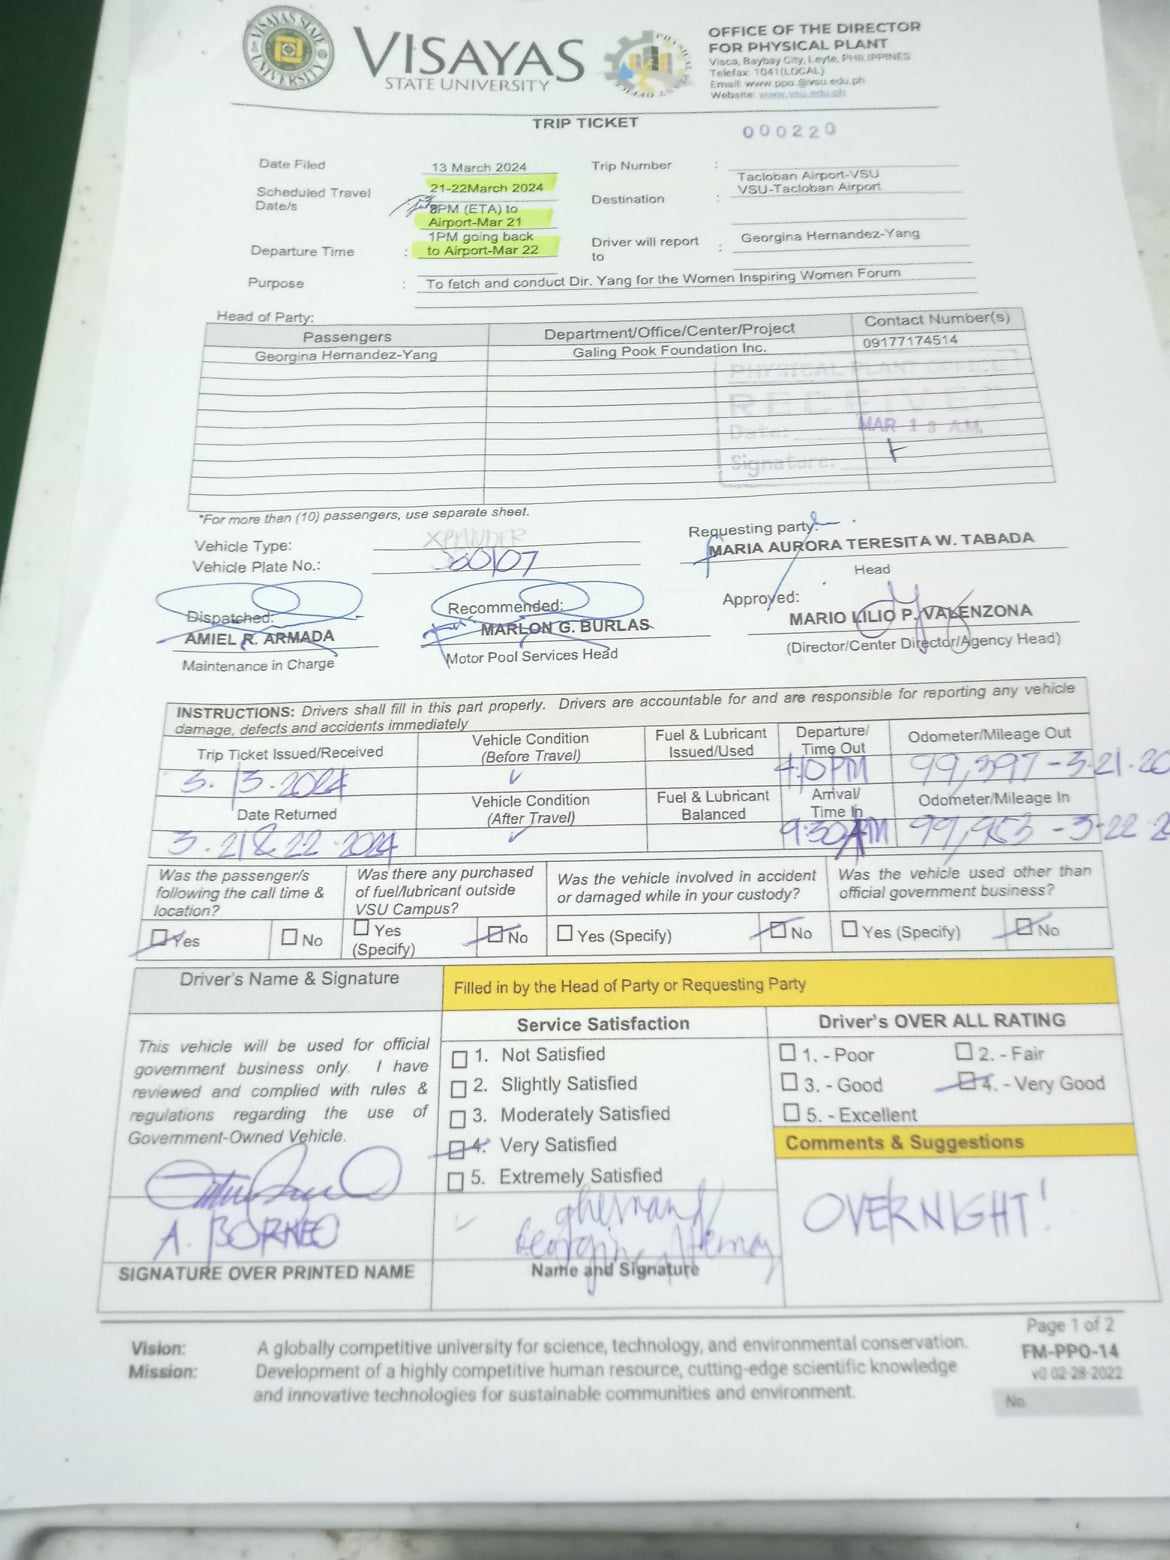 VISAYAS STATE UNIVERSITY
VISAYAS
STATE UNIVERSITY
OFFICE OF THE DIRECTOR
FOR PHYSICAL PLANT
Visca, Baybay City, Leyte, PHILIPPINES
Telefax: 1041(LOCAL)
Email: www.ppo.@vsu.edu.ph
Website: www.vsu.edu.ph
TRIP TICKET
000220
Date Filed
13 March 2024
Trip Number :
Scheduled Travel Date/s
21-22March 2024
Destination :
Tacloban Airport-VSU
VSU-Tacloban Airport
Departure Time :
8PM (ETA) to
Airport-Mar 21
1PM going back
to Airport-Mar 22
Driver will report to :
Georgina Hernandez-Yang
Purpose :
To fetch and conduct Dir. Yang for the Women Inspiring Women Forum
Head of Party:
Passengers
Department/Office/Center/Project
Contact Number(s)
Georgina Hernandez-Yang
Galing Pook Foundation Inc.
09177174514
PHYSICAL PLANT OFFICE
RECEIVED
Date:
MAR 13 A.M.
Signature:
*For more than (10) passengers, use separate sheet.
Vehicle Type:
XPANDER
Vehicle Plate No.:
Requesting party:
MARIA AURORA TERESITA W. TABADA
Head
Dispatched:
AMIEL R. ARMADA
Maintenance in Charge
Recommended:
MARLON G. BURLAS
Motor Pool Services Head
Approved:
MARIO LILIO P. VALENZONA
(Director/Center Director/Agency Head)
INSTRUCTIONS: Drivers shall fill in this part properly. Drivers are accountable for and are responsible for reporting any vehicle
damage, defects and accidents immediately
Trip Ticket Issued/Received
Vehicle Condition
(Before Travel)
Fuel & Lubricant
Issued/Used
Departure/
Time Out
Odometer/Mileage Out
3. 13. 2024
✓
99,397 - 3.21.20
Date Returned
Vehicle Condition
(After Travel)
Fuel & Lubricant
Balanced
Arrival/
Time In
Odometer/Mileage In
3. 21 & 22. 2024
✓
9:30AM
99,953 - 3-22.2
Was the passenger/s
following the call time &
location?
Was there any purchased
of fuel/lubricant outside
VSU Campus?
Was the vehicle involved in accident
or damaged while in your custody?
Was the vehicle used other than
official government business?
Yes
No
Yes
(Specify)
No
Yes (Specify)
No
Yes (Specify)
No
Driver's Name & Signature
Filled in by the Head of Party or Requesting Party
This vehicle will be used for official
government business only. I have
reviewed and complied with rules &
regulations regarding the use of
Government-Owned Vehicle.
A. BORNEO
SIGNATURE OVER PRINTED NAME
Service Satisfaction
1. Not Satisfied
2. Slightly Satisfied
3. Moderately Satisfied
4. Very Satisfied
5. Extremely Satisfied
Name and Signature
Driver's OVER ALL RATING
1. - Poor
2. - Fair
3. - Good
4. - Very Good
5. - Excellent
Comments & Suggestions
OVERNIGHT!
Vision: A globally competitive university for science, technology, and environmental conservation.
Mission: Development of a highly competitive human resource, cutting-edge scientific knowledge
and innovative technologies for sustainable communities and environment.
Page 1 of 2
FM-PPO-14
v0 02-28-2022
No.